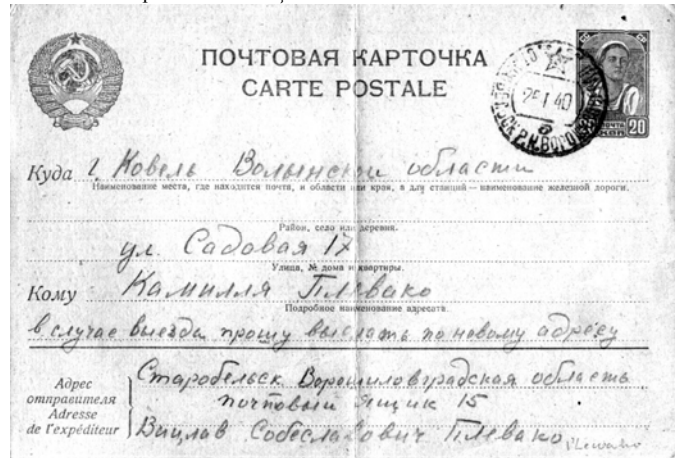 ПОЧТОВАЯ КАРТОЧКА
CARTE POSTALE
25 1 40
ПОЧТА
20 КОП
Куда г. Ковель Волынской области
Наименование места, где находится почта, и области или края, а для станций — наименование железной дороги.
Район, село или деревня.
ул. Садовая 17
Улица, № дома и квартиры.
Кому Камилля Плевако
Подробное наименование адресата.
в случае выезда прошу выслать по новому адресу
Адрес отправителя
Adresse de l'expéditeur
Старобельск Ворошиловградская область
почтовый ящик 15
Вицлав Собеславович Плевако
Plewako